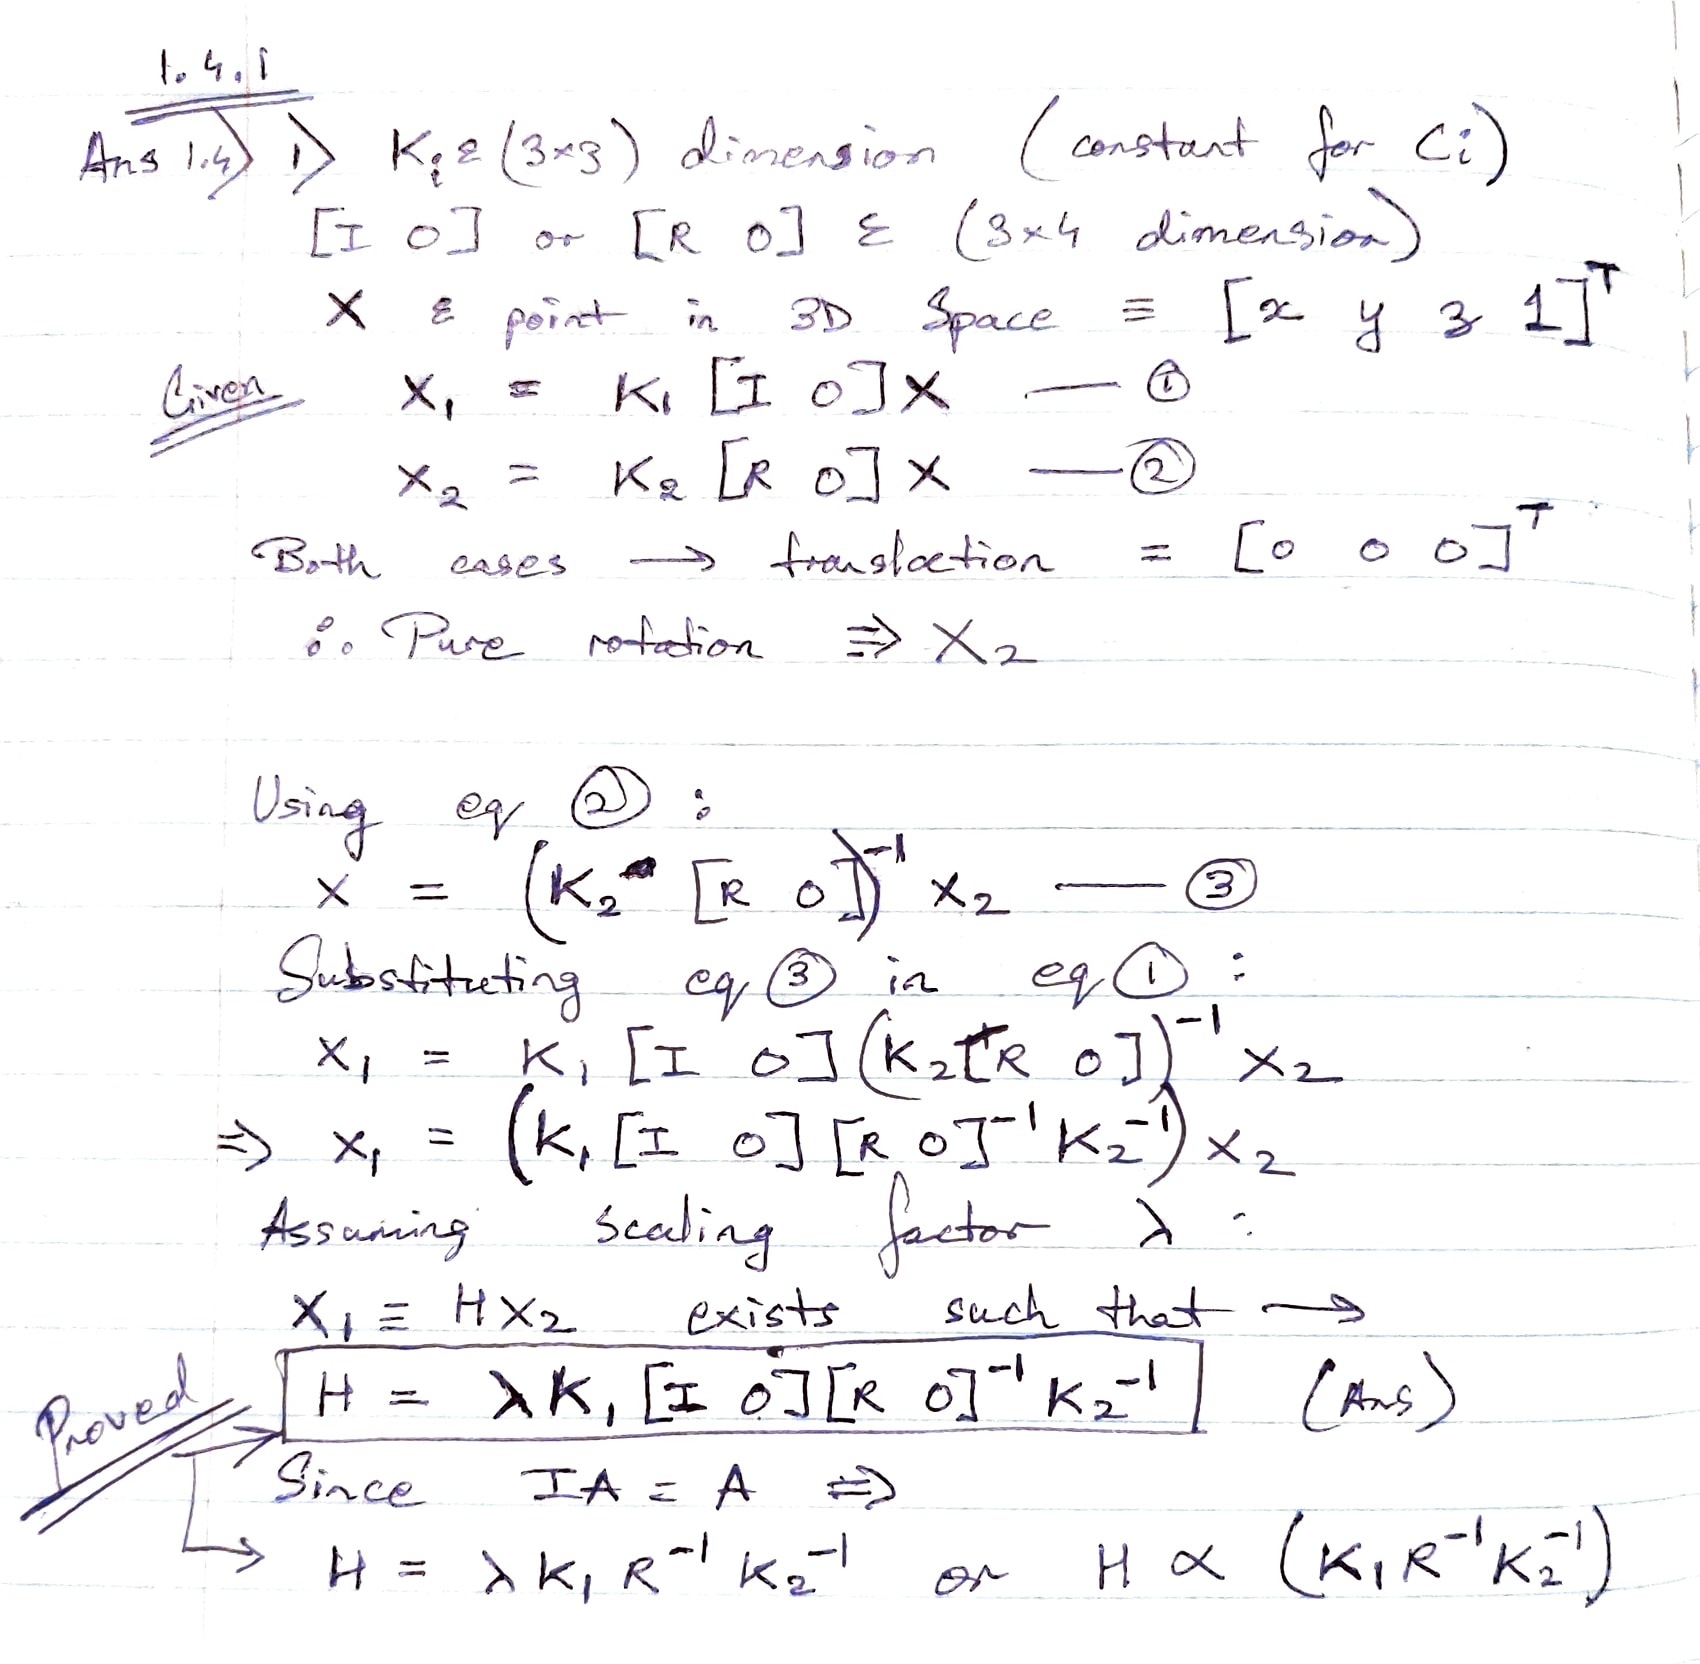 1.4.1
Ans 1.4) 1) Kᵢ ε (3×3) dimension (constant for Ci)
[I 0] or [R 0] ε (3×4 dimension)
X ε point in 3D Space ≡ [x y z 1]ᵀ
Given X₁ = K₁ [I 0] X — ①
X₂ = K₂ [R 0] X — ②
Both cases → translation = [0 0 0]ᵀ
∴ Pure rotation ⇒ X₂
Using eq ② :
X = (K₂ [R 0])⁻¹ X₂ — ③
Substituting eq ③ in eq ① :
X₁ = K₁ [I 0] (K₂ [R 0])⁻¹ X₂
⇒ X₁ = (K₁ [I 0] [R 0]⁻¹ K₂⁻¹) X₂
Assuming scaling factor λ :
X₁ ≡ HX₂ exists such that →
Proved H = λK₁ [I 0] [R 0]⁻¹ K₂⁻¹ (Ans)
Since IA = A ⇒
H = λ K₁ R⁻¹ K₂⁻¹ or H ∝ (K₁ R⁻¹ K₂⁻¹)